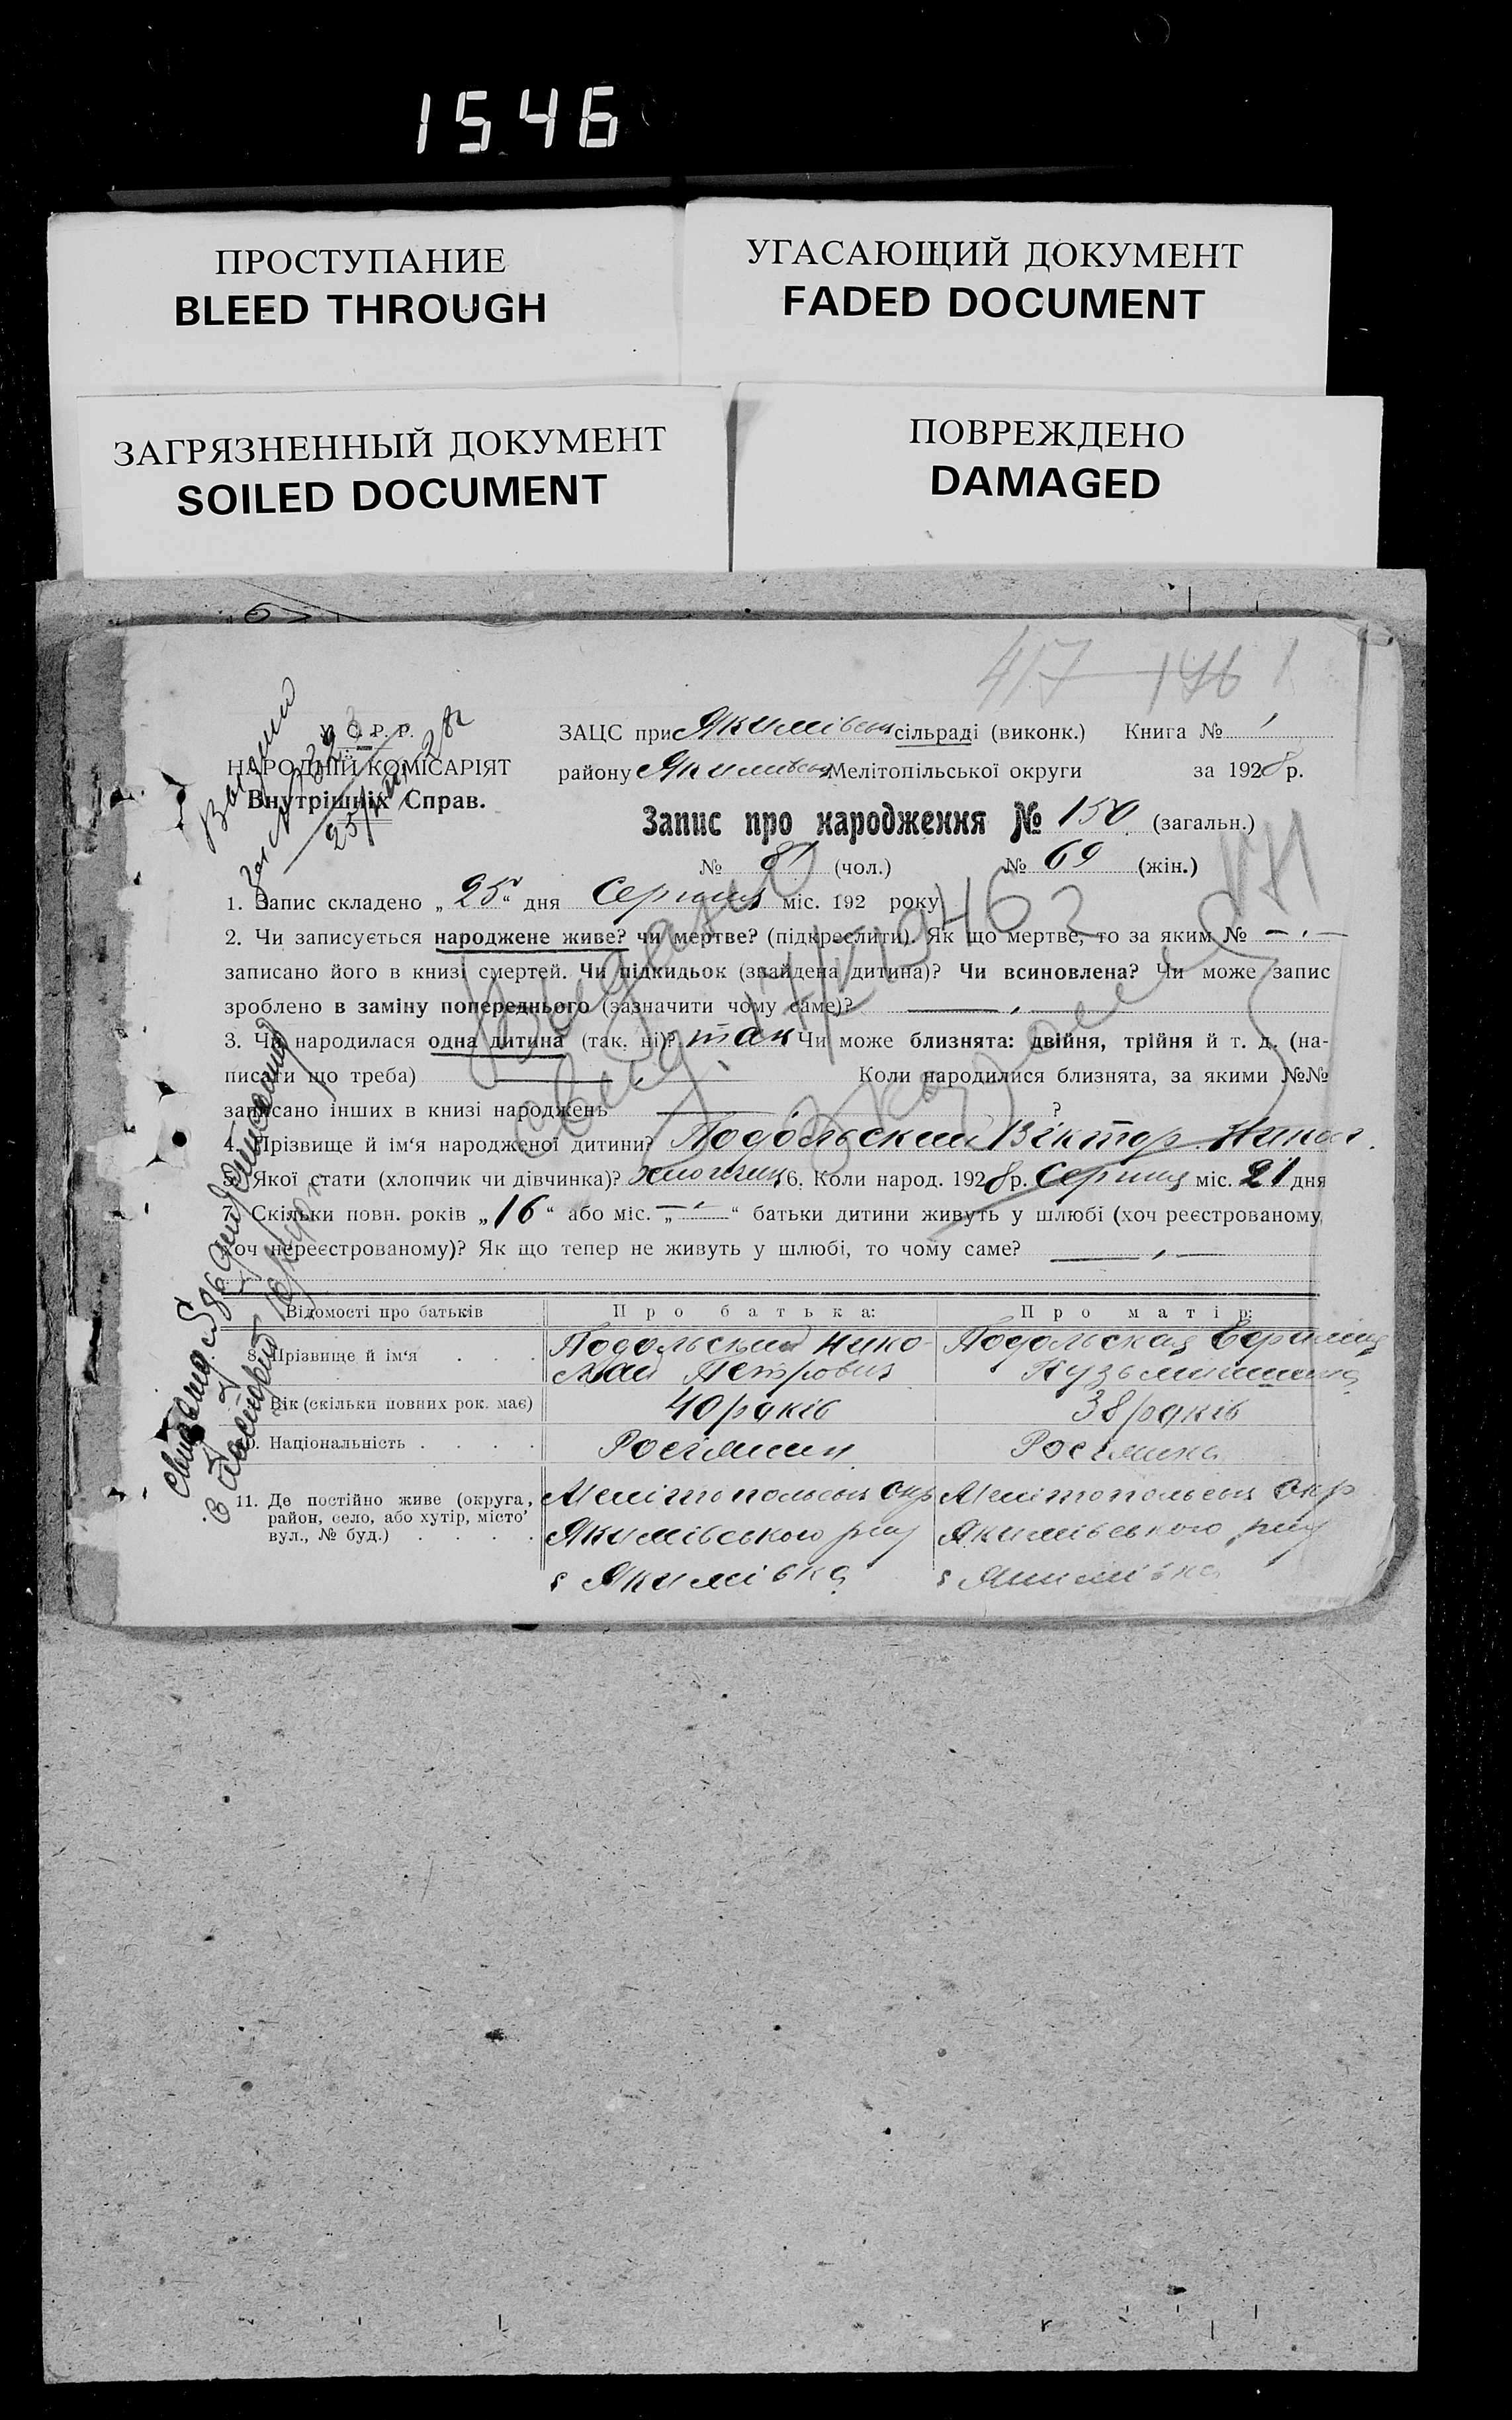 1546
ПРОСТУПАНИЕ
BLEED THROUGH
УГАСАЮЩИЙ ДОКУМЕНТ
FADED DOCUMENT
ЗАГРЯЗНЕННЫЙ ДОКУМЕНТ
SOILED DOCUMENT
ПОВРЕЖДЕНО
DAMAGED
417 146
У. С. Р. Р.
НАРОДНІЙ КОМІСАРІЯТ
Внутрішніх Справ.
ЗАЦС при Якимівськ сільраді (виконк.) Книга № 1
району Якимівськ Мелітопільської округи за 1928 р.
Запис про народження № 150 (загальн.)
№ 81 (чол.) № 69 (жін.)
1. Запис складено „25“ дня Серпня міс. 192 року
2. Чи записується народжене живе? чи мертве? (підкреслити). Як що мертве, то за яким № —
записано його в книзі смертей. Чи підкидьок (знайдена дитина)? Чи всиновлена? Чи може запис
зроблено в заміну попереднього (зазначити чому саме)? —
3. Чи народилася одна дитина (так. ні)? так Чи може близнята: двійня, трійня й т. д. (на-
писати що треба) — Коли народилися близнята, за якими №№
записано інших в книзі народжень — ?
4. Прізвище й ім‘я народженої дитини? Подольский Віктор Никол.
5. Якої стати (хлопчик чи дівчинка)? Хлопчик 6. Коли народ. 1928 р. Серпня міс. 21 дня
7. Скільки повн. років „16“ або міс. „—“ батьки дитини живуть у шлюбі (хоч реєстрованому,
хоч нереєстрованому)? Як що тепер не живуть у шлюбі, то чому саме? —
Відомості про батьків Про батька: Про матір:
8. Прізвище й ім‘я Подольский Нико- Подольская
лай Петрович
Вік (скільки повних рок. має) 40 років 38 років
Національність Росіянин Росіянка
11. Де постійно живе (округа, район, село, або хутір, місто вул., № буд.)
Мелітопольськ окр Мелітопольськ окр
Якимівського р-ну Якимівського р-ну
с Якимівка с Якимівка